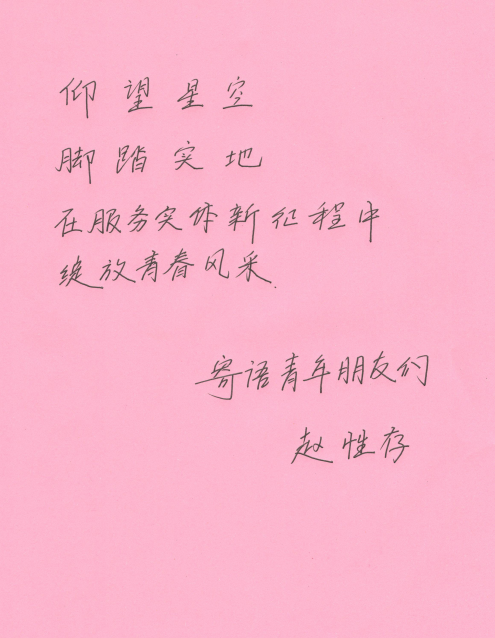 仰望星空
脚踏实地
在服务实体新征程中
绽放青春风采.
寄语青年朋友们
赵性存